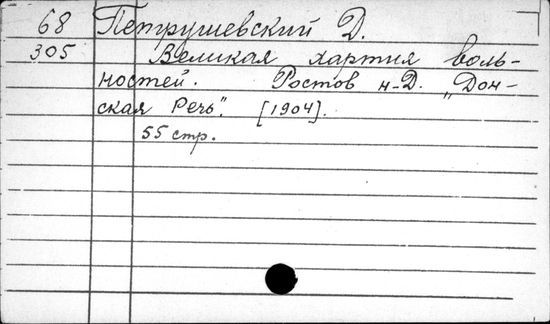 68 Петрушевский Д.
305 Великая хартия воль-
ностей. Ростов н-Д. „Дон-
ская Речь". [1904].
55 стр.